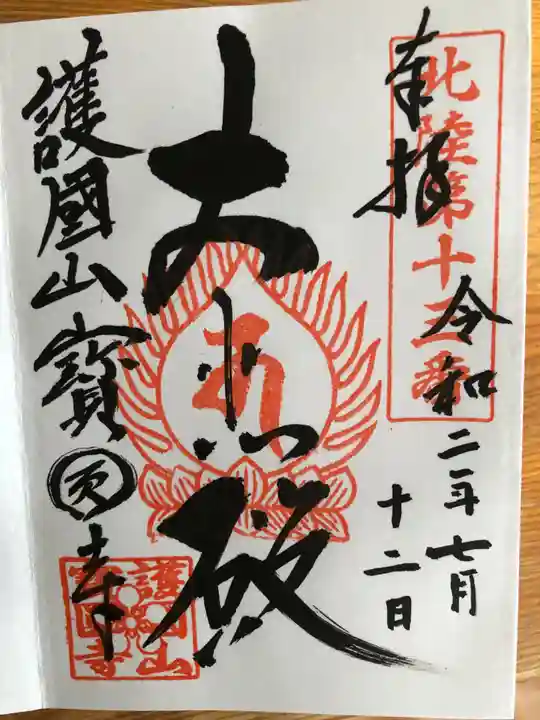 奉拝
北陸第十三番
令和二年七月
十二日
大悲殿
護國山寳円寺
護國山
寳円寺